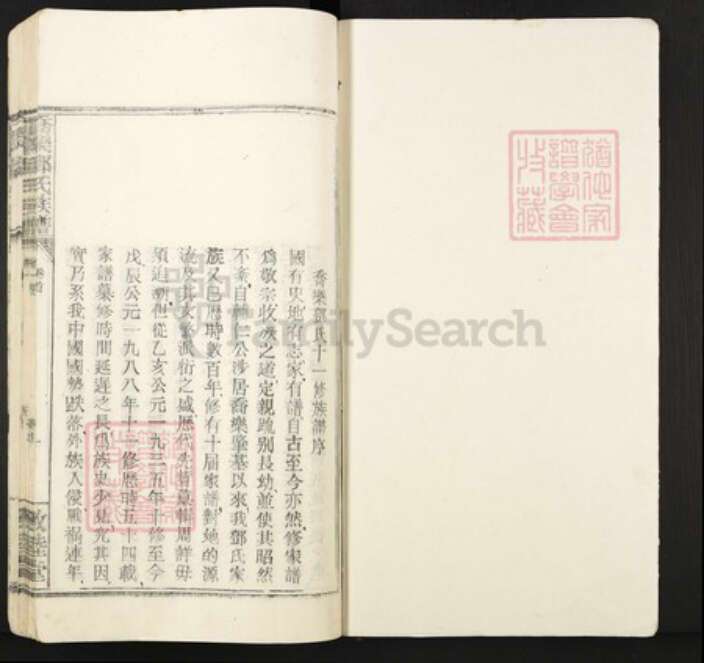 喬樂鄧氏十一修族譜序
國有史地有志家有譜自古至今亦然修家譜
爲敬宗收族之道定親踈别長幼並使其昭然
不紊自 仁公涉居喬樂肇基以來我鄧氏家
族又已歷時數百年修有十届家譜對她的源
流及其 派衍之盛歷代先 纂輯周詳毋
須追 但從乙亥公元一九三五年十修至今
戊辰公元一九八八年十一修歷時五十四載
家譜纂修時間延遲之長 族史少見究其因
實乃系我中國國勢跌落外族人侵戰禍連年
喬樂鄧氏族譜
卷首
敦睦堂
猶他家
譜學會
收藏
FamilySearch